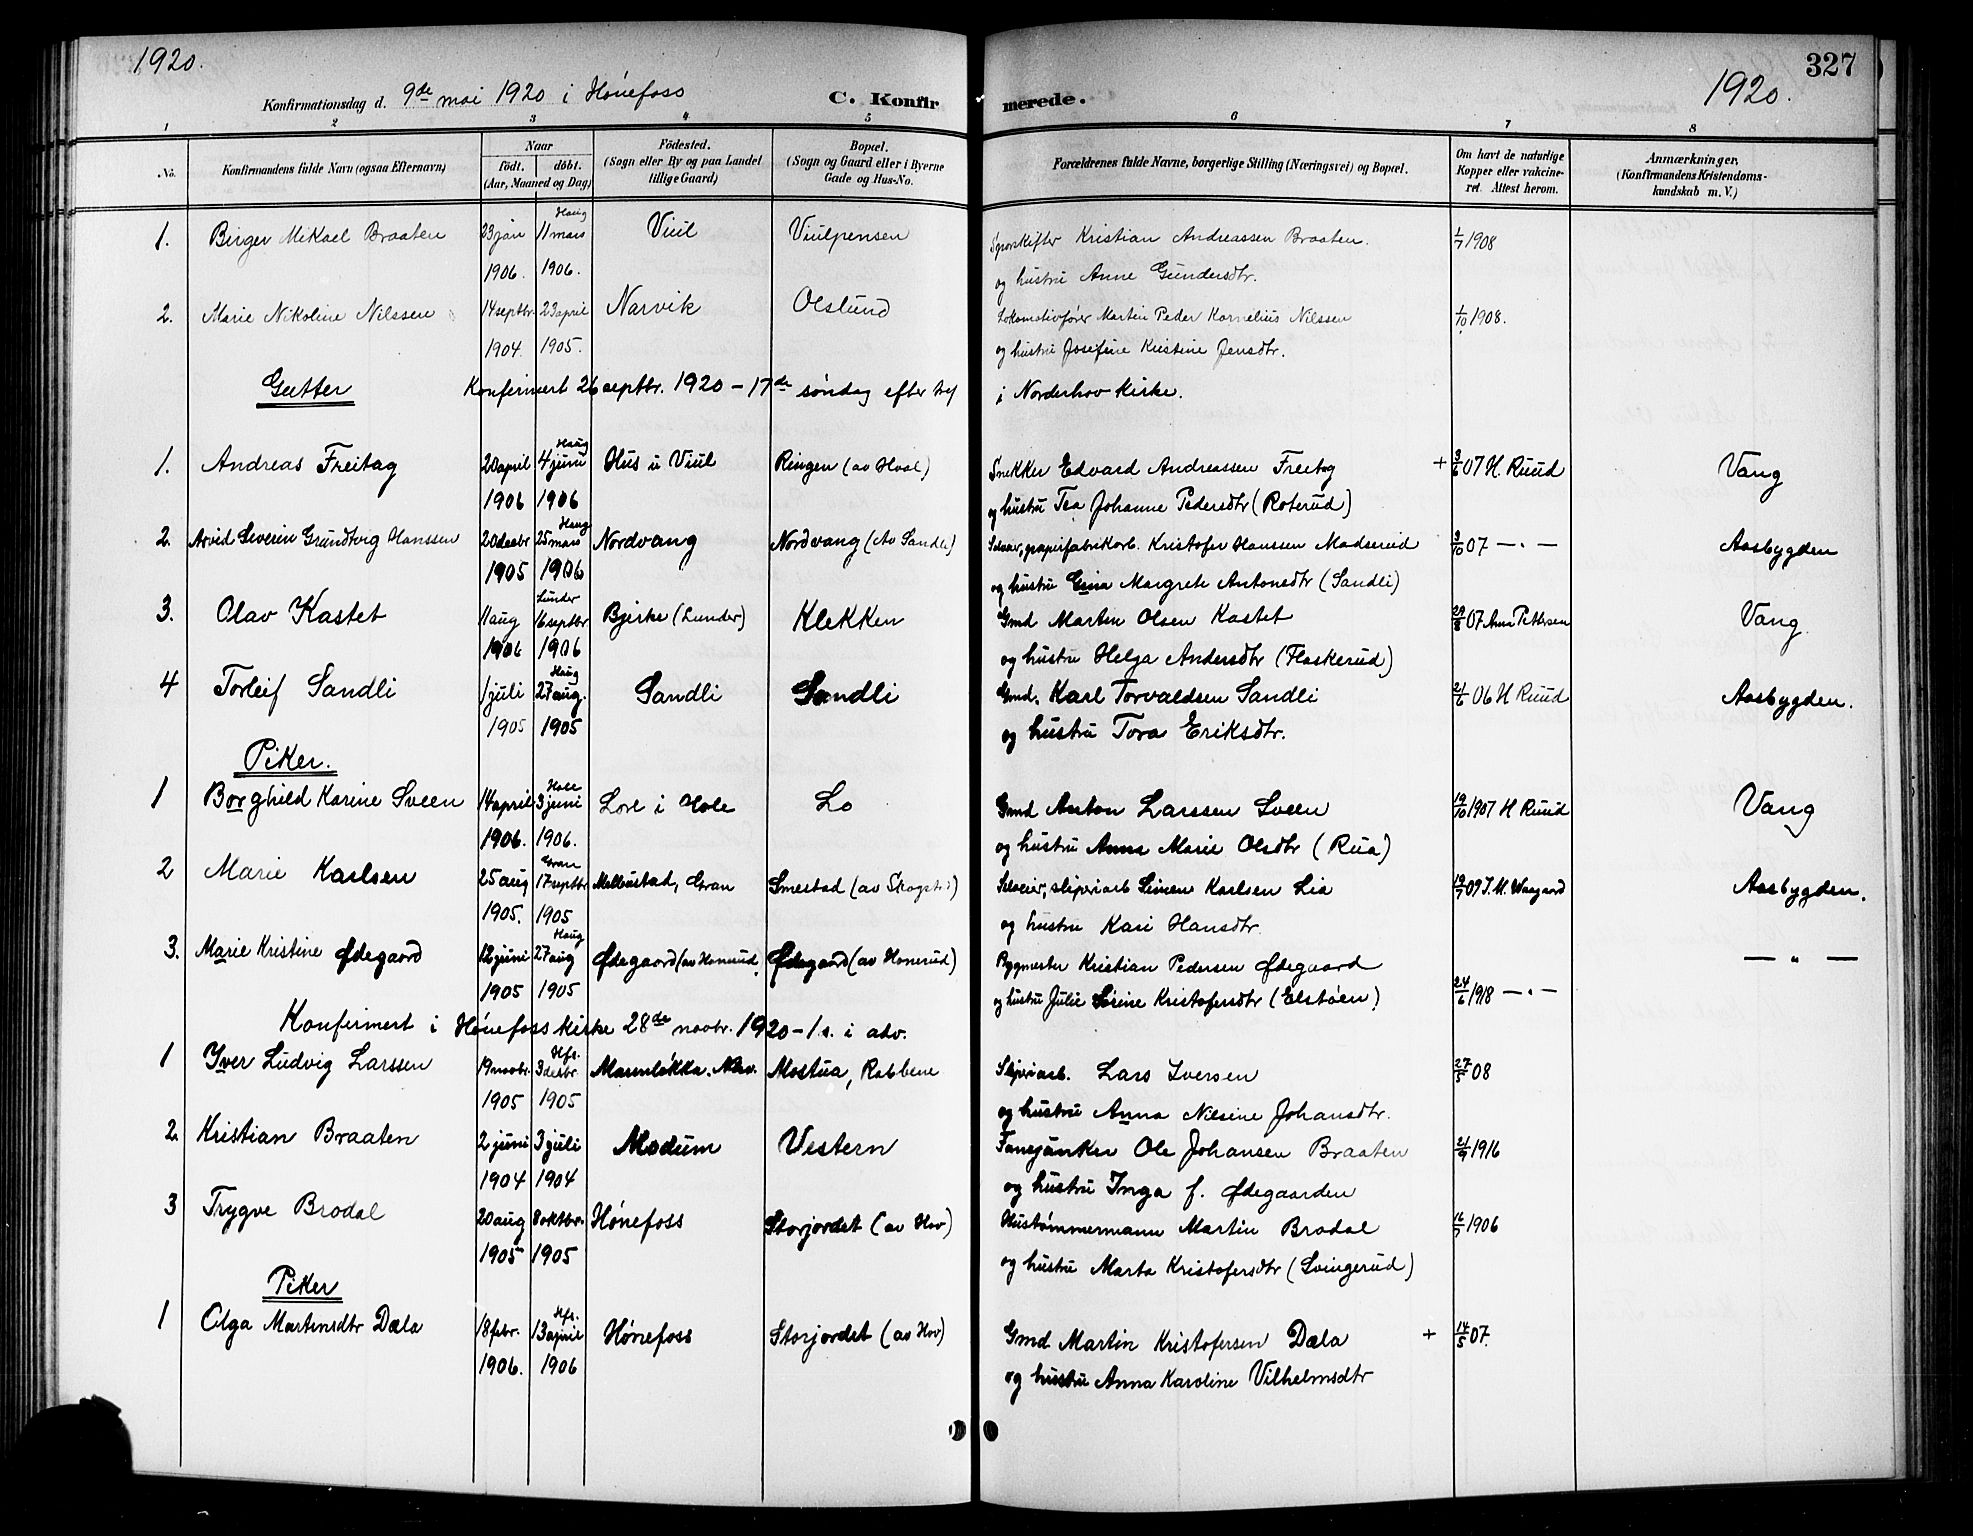 1920.
327
1920.
Konfirmationsdag d. 9de mai 1920 i Hönefoss
C. Konfirmerede.
1 2 3 4 5 6 7 8
No.
Konfirmandens fulde Navn (ogsaa Efternavn)
Naar
födt. döbt.
(Aar, Maaned og Dag)
Födested.
(Sogn eller By og paa Landet tillige Gaard)
Bopæl.
(Sogn og Gaard eller i Byerne Gade og Hus-No.
Forældrenes fulde Navne, borgerlige Stilling (Næringsvei) og Bopæl.
Om havt de naturlige Kopper eller vakcineret. Attest herom.
Anmærkninger,
(Konfirmandens Kristendomskundskab m. V.)
Haug
1. Birger Mikael Braaten 23 jan 11 mars Viul Viulpensen Sporskifter Kristian Andreassen Braaten. 1/7 1908
1906. 1906. og hustru Anne Gundersdtr.
2. Marie Nikoline Nilssen 14 septbr. 23 april Narvik Olslund Lokomotivförer Martin Peder Kornelius Nilssen 1/10 1908.
1904. 1905. og hustru Josefine Kristine Jensdtr.
Gutter Konfirmert 26 septbr. 1920 – 17de söndag efter tref i Norderhov Kirke.
Haug
1. Andreas Freitag 20 april 4 juni Hus u Viul Ringen (av Hval) Snekker Edvard Andreassen Freitag + 3/6 07 H. Ruud Vang
1906 1906 og hustru Tea Johanne Pedersdtr (Roterud)
Haug
2. Arvid Severin Grundtvig Hanssen 20 desbr 25 mars Nordvang Nordvang (av Sandli) Selvei., papirfabrikarb. Kristofer Hanssen Madserud 3/10 07 — " — Aasbygden
1905 1906 og hustru Gina Margrete Antonsdtr (Sandli)
Lunder
3. Olav Kastet 11 aug 16 septbr Bjerke (Lunder) Klekken Gmd Martin Olsen Kastet 29/8 07 Anna Pettersen Vang.
1906 1906 og hustru Helga Andersdtr (Flaskerud)
Haug
4 Torleif Sandli 1 juli 27 aug. Sandli Sandli Gmd. Karl Torvaldsen Sandli 21/6 06 H Ruud Aasbygden.
1905 1905 og hustru Tora Eriksdtr.
Piker.
Hole
1 Borghild Karine Sveen 14 april 3 juni Lore i Hole Lo Gmd Anton Larssen Sveen 19/10 1907 H Ruud Vang
1906. 1906. og hustru Anna Marie Olsdtr (Rua)
Gran
2 Marie Karlsen 25 aug 17 septbr Melbustad, Gran Smestad (av Skogstad) Selveier, sliperiarb Simen Karlsen Lia 19/7 09 J. M. Waagaard Aasbygden.
1905. 1905 og hustru Kari Hansdtr
Haug
3. Marie Kristine Ødegaard 12 juni 27 aug Ødegaard (av Honerud) Ødegaard (av Honerud) Bygmester Kristian Pedersen Ødegaard — " —
1905 1905 og hustru Julie Sörine Kristofersdtr (Elstöen) 24/6 1918 — " —
Konfirmert i Hönefoss kirke 28de novbr. 1920 – 1. s. i adv.
Hfs.
1 Yver Ludvig Larssen 19 novbr. 3 desbr. Marmlökka. Mostua, Rabbene Sliperiarb. Lars Iversen 27/5 08
1905 1905 og hustru Anna Nilsine Johansdtr.
2. Kristian Braaten 2 juni 3 juli Modum Vestern Ole Johansen Braaten 21/9 1916
1904 1904 og hustru Inga f. Ødegaarden
3 Trygve Brodal 20 aug 8 oktbr. Hönefoss Storjordet (av Hov) Hustömmermann Martin Brodal 16/7 1906
1905 1905 og hustru Marta Kristofersdtr (Svingerud)
Piker
Hfs.
1 Olga Martinsdtr Dæla 18 febr. 13 april Hönefoss Storjordet (av Hov) Gmd Martin Kristofersen Dæla + 14/5 07.
1906. 1906 og hustru Anna Karoline Vilhelmsdtr